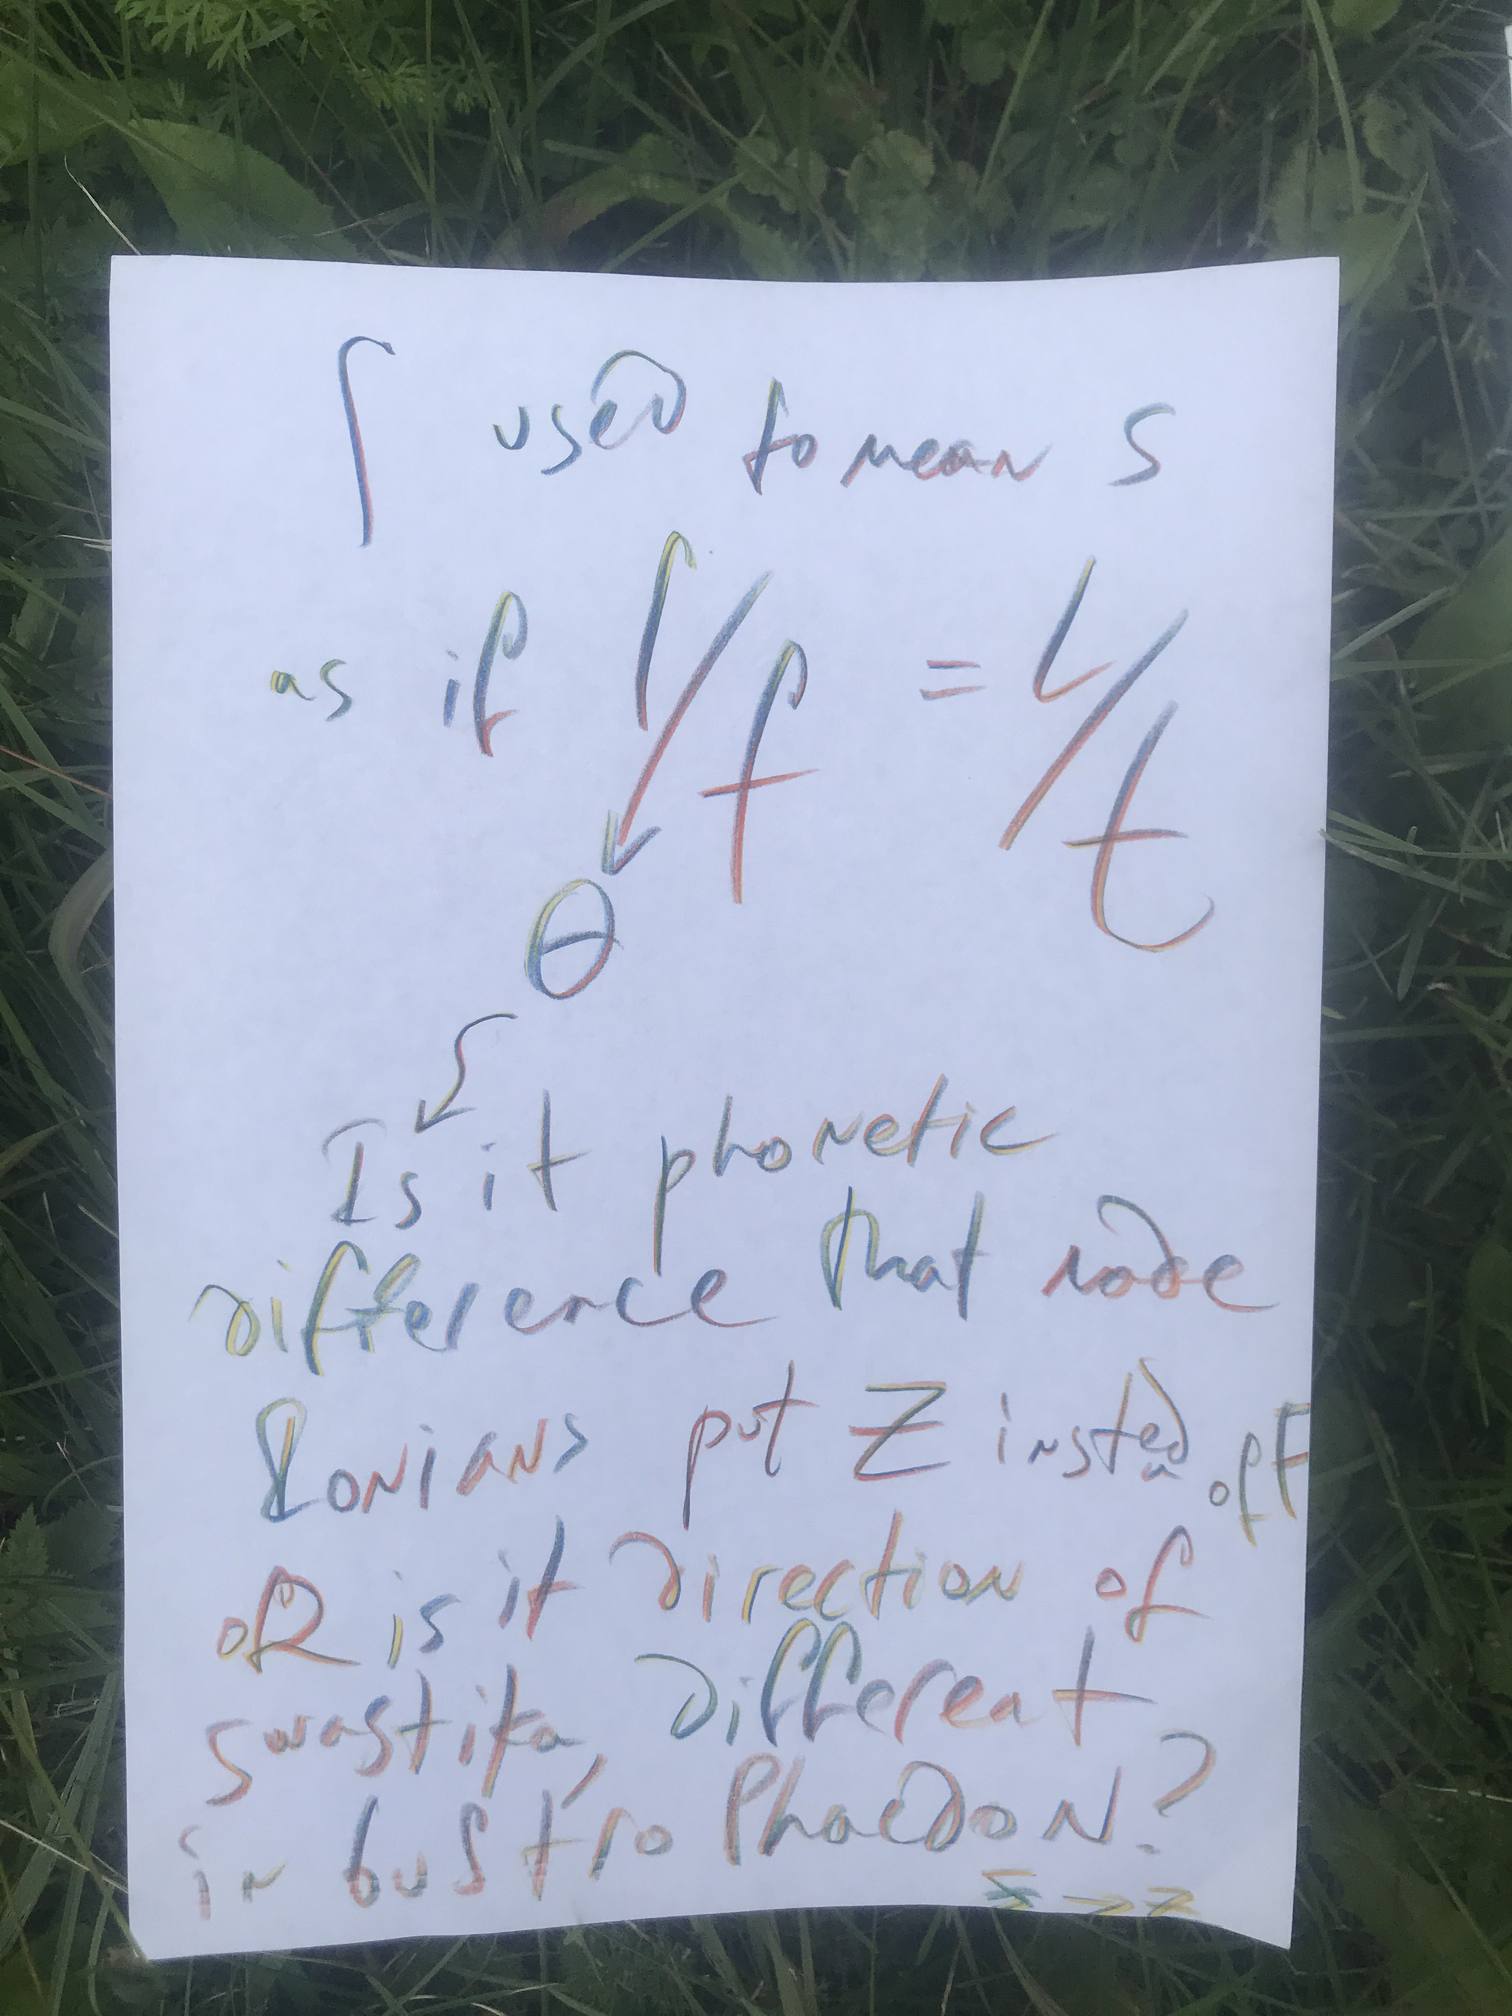 ſ used to mean S
as if ſ/f = l/t
θ
Is it phonetic
difference that
put Z instead of
oR is it direction of
swastika, different
in bustrophaedon?
Σ → Z